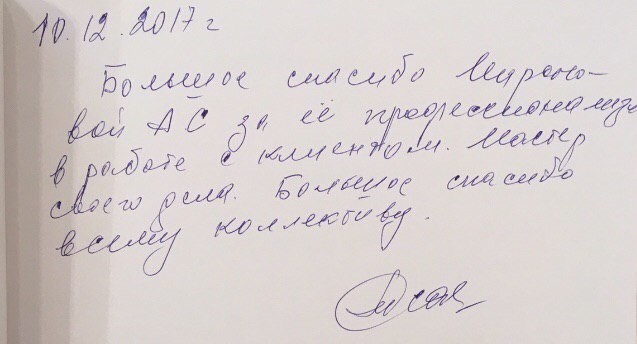 10.12.2017 г
Большое спасибо Мироно-
вой АС за её профессионализм
в работе с клиентом. Мастер
своего дела. Большое спасибо
всему коллективу.